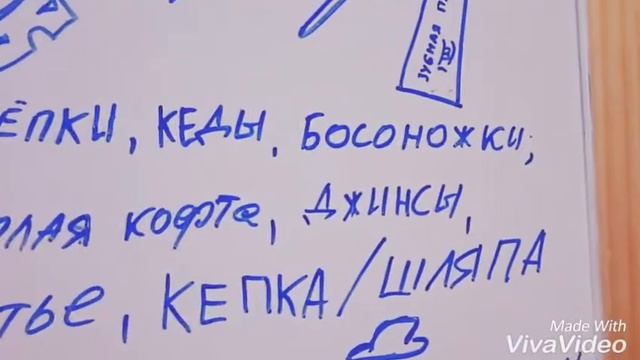 ЗУБНАЯ
КЕДЫ, БОСОНОЖКИ,
кофта, ДЖИНСЫ,
КЕПКА/ШЛЯПА
Made With
VivaVideo